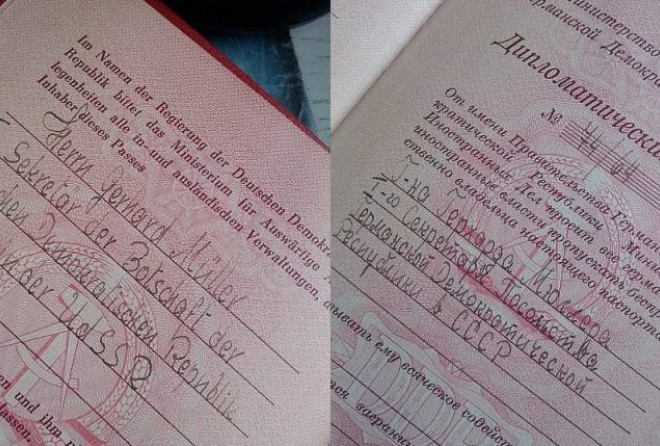 Im Namen der Regierung der Deutschen Demokra
Republik bittet das Ministerium für Auswärtige
legenheiten alle in- und ausländischen Verwaltungen,
Inhaber dieses Passes
Herrn Gerhard Müller
Sekretär der Botschaft der
chen Demokratischen Republik
in der UdSSR
en und ihm
lassen.
Министерство
Германской Демокр
Дипломатически
№ 44
От имени Правительства Германс
кратической Республики Мини
Иностранных Дел просит все герма
иностранные власти пропускать беспр
ственно владельца настоящего паспорта
Г-на Герхарда Мюллера
1-го Секретаря Посольства
Германской Демократической
Республики в СССР
зывать ему всяческое содейс